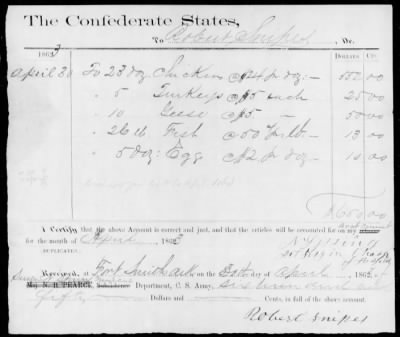 The Confederate States,
To Robert Snipes, Dr.
1863 DOLLARS CTS
April 30 To 23 doz Chicken @ $24 pr doz - 552 00
" 5 Turkeys @ $5 each 25 00
" 10 Geese @ $5 - 50 00
" 26 lb Fish @ 50 pr lb - 13 00
" 5 doz: Egg @ $2 pr doz - 10 00
$650 00
I CERTIFY that the above Account is correct and just, and that the articles will be accounted for
for the month of April, 1863
RECEIVED, at Fort Smith Ark on the 30th day of April, 1863, of
Maj. N. B. PEARCE, Subsistence Department, C. S. Army, six hundred and
fifty Dollars and Cents, in full of the above account.
Robert Snipes